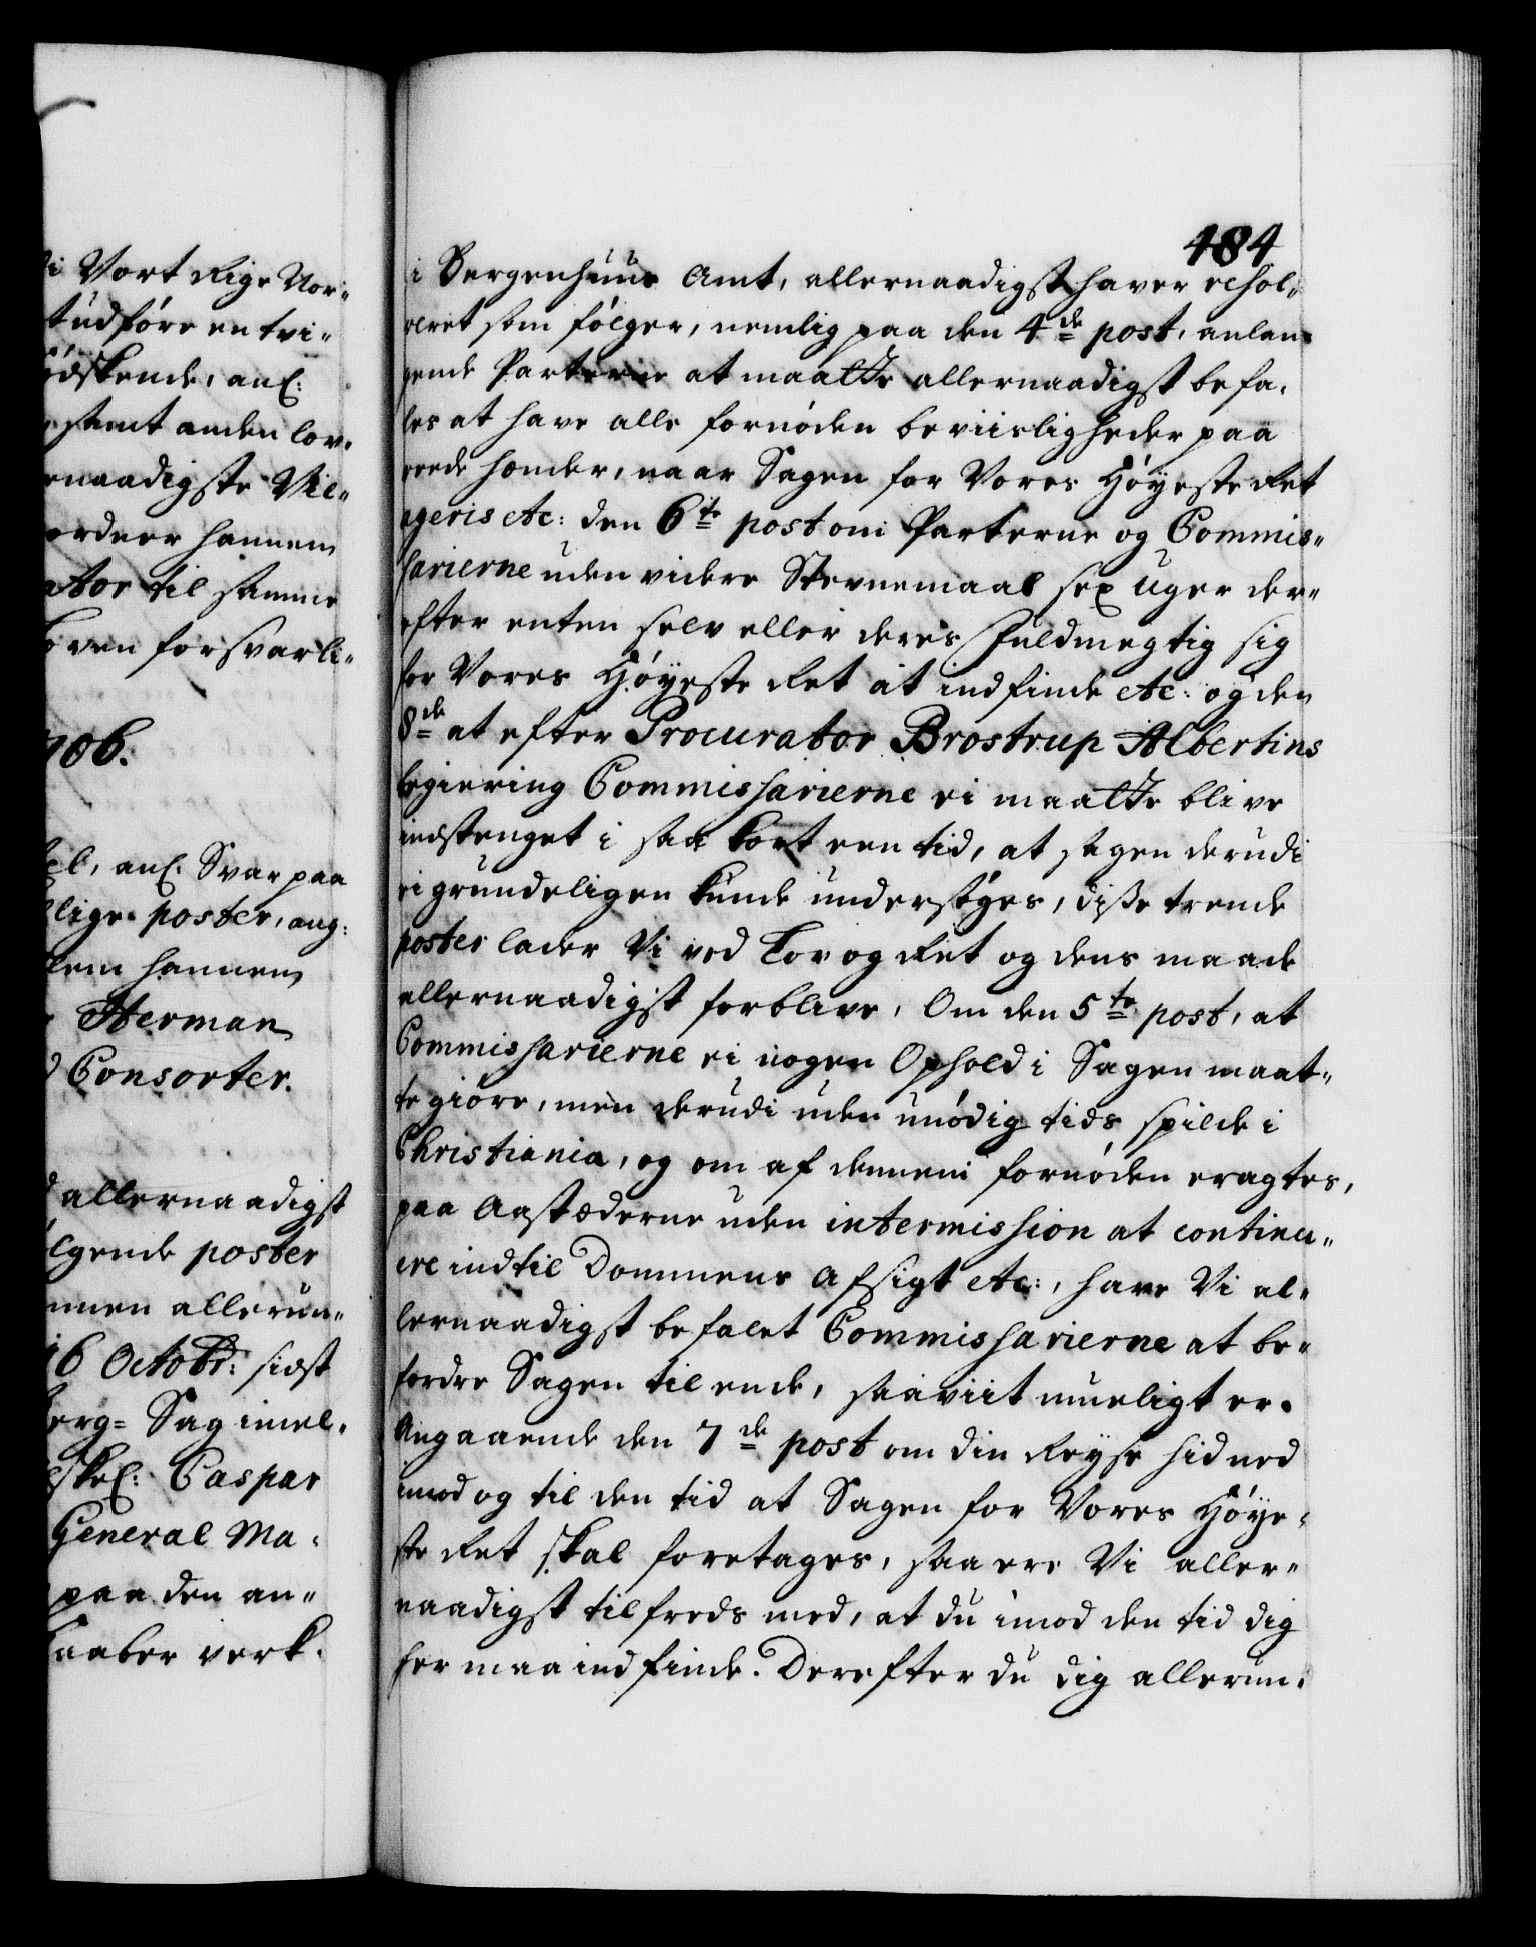 i Vort Rige Nor-
udføre en tvi-
ødskende, anl:
samt anden lov-
ernaadigste Vil-
ordner hannem
ator til samme
oven forsvarli-
706.
el, anl. Svar paa
lige poster, ang:
lem hannem
Herman
d Consorter.
allernaadigst
lgende poster
nnen allerun-
16 Octobr: sidst
berg= Sag imel-
Caspar
General Ma-
paa den an-
Kaaber verk.
484
i Bergenhuus Amt, allernaadigst haver resol-
veret som følger, nemlig paa den 4de post, anlan-
gende Parterne at maatte allernaadigst befa-
les at have alle fornøden beviisligheder paa
rede hænder, naar Sagen for Vores Høyeste Ret
ageris etc: den 6te post om Parterne og Commis-
sarierne uden videre Stevnemaal sex uger der-
efter enten selv eller deres Fuldmegtig sig
for Vores Høyeste Ret at indfinde etc: og den
8de at efter Procurator Brostrup Albertins
begiering Commissarierne ei maatte blive
indstenget i saa kort een tid, at sagen derudi
ei grundeligen kunde undersøges, disse trende
poster lader Vi ved Lov og Ret og dens maade
allernaadigst forblive, Om den 5te post, at
Commissarierne ei nogen Ophold i Sagen maat-
te giøre, men derudi uden unødig tids spilde i
Christiania, og om af dennem fornøden eragtes,
paa Aastæderne uden intermission at continu-
ere indtil Dommens Afsigt etc:, have Vi al-
lernaadigst befalet Commissarierne at be-
fordre Sagen til ende, saaviit mueligt er.
Angaaende den 7de post om din Reyse hid ned
imod og til den tid at Sagen for Vores Høye-
ste Ret skal foretages, saa ere Vi aller-
naadigst tilfreds med, at du imod den tid dig
her maa indfinde. Derefter du dig allerun-